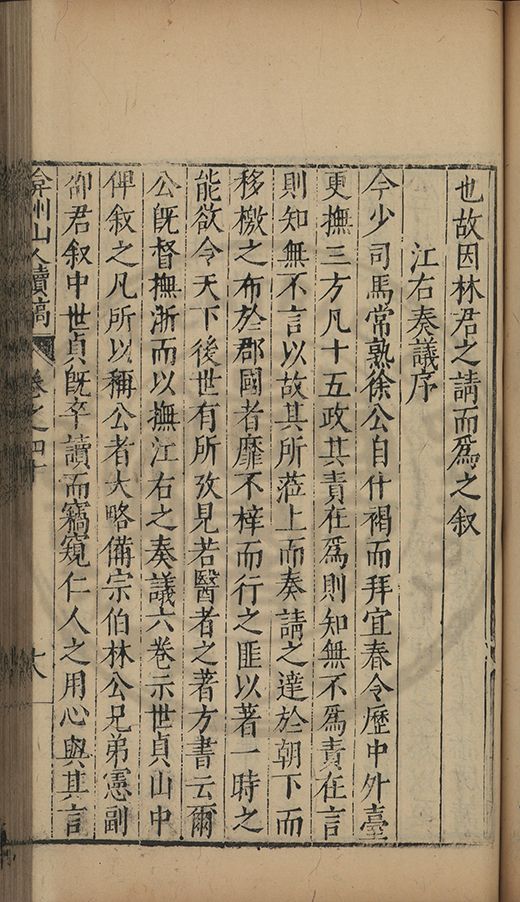 也故因林君之請而爲之叙
江右奏議序
今少司馬常熟徐公自什褐而拜宜春令歷中外臺
更撫三方凡十五政其責在爲則知無不爲責在言
則知無不言以故其所蒞上而奏請之達於朝下而
移檄之布於郡國者靡不梓而行之匪以著一時之
能欲令天下後世有所攷見若醫者之著方書云爾
公旣督撫浙而以撫江右之奏議六卷示世貞山中
俾叙之凡所以稱公者大略備宗伯林公兄弟憲副
仰君叙中世貞旣卒讀而竊窺仁人之用心與其言
弇州山人續稿 卷之四十 十八